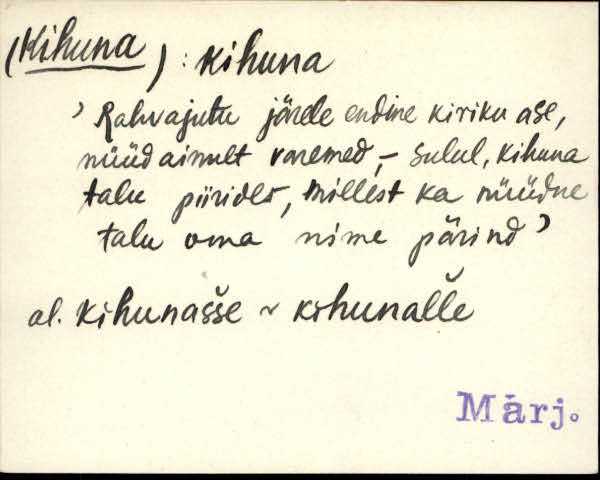 (Kihuna) : kihuna
' Rahvajutu järele endine kiriku ase,
nüüd ainult varemed, – Sulul, Kihuna
talu piirides, millest ka nüüdne
talu oma nime pärind '
al. kihunašše ~ kihunalle
Märj.